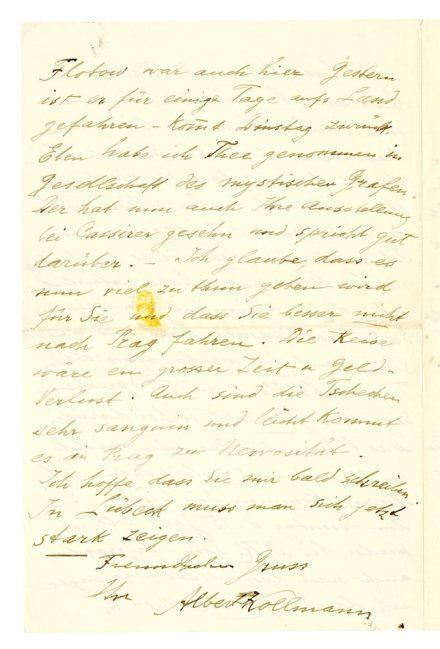 Flotow war auch hier Gestern
ist er für einige Tage aufs Land
gefahren - Komt Dinstag zurück.
Eben habe ich Thee genommen in
Gesellschaft des mystischen Grafen.
Der hat nun auch Ihre Ausstellung
bei Cassirer gesehn und spricht gut
darüber. - Ich glaube dass es
nun viel zu thun geben wird
für Sie und dass Sie besser nicht
nach Prag fahren. Die Reise
wäre ein grosser Zeit u Geld-
Verlust. Auch sind die Tschechen
sehr sanguin und leicht kommt
es in Prag zu Nervosität.
Ich hoffe dass Sie mir bald schreiben
In Lübeck muss man sich jetzt
stark zeigen.
Gruss
Ihr Albert Kollmann